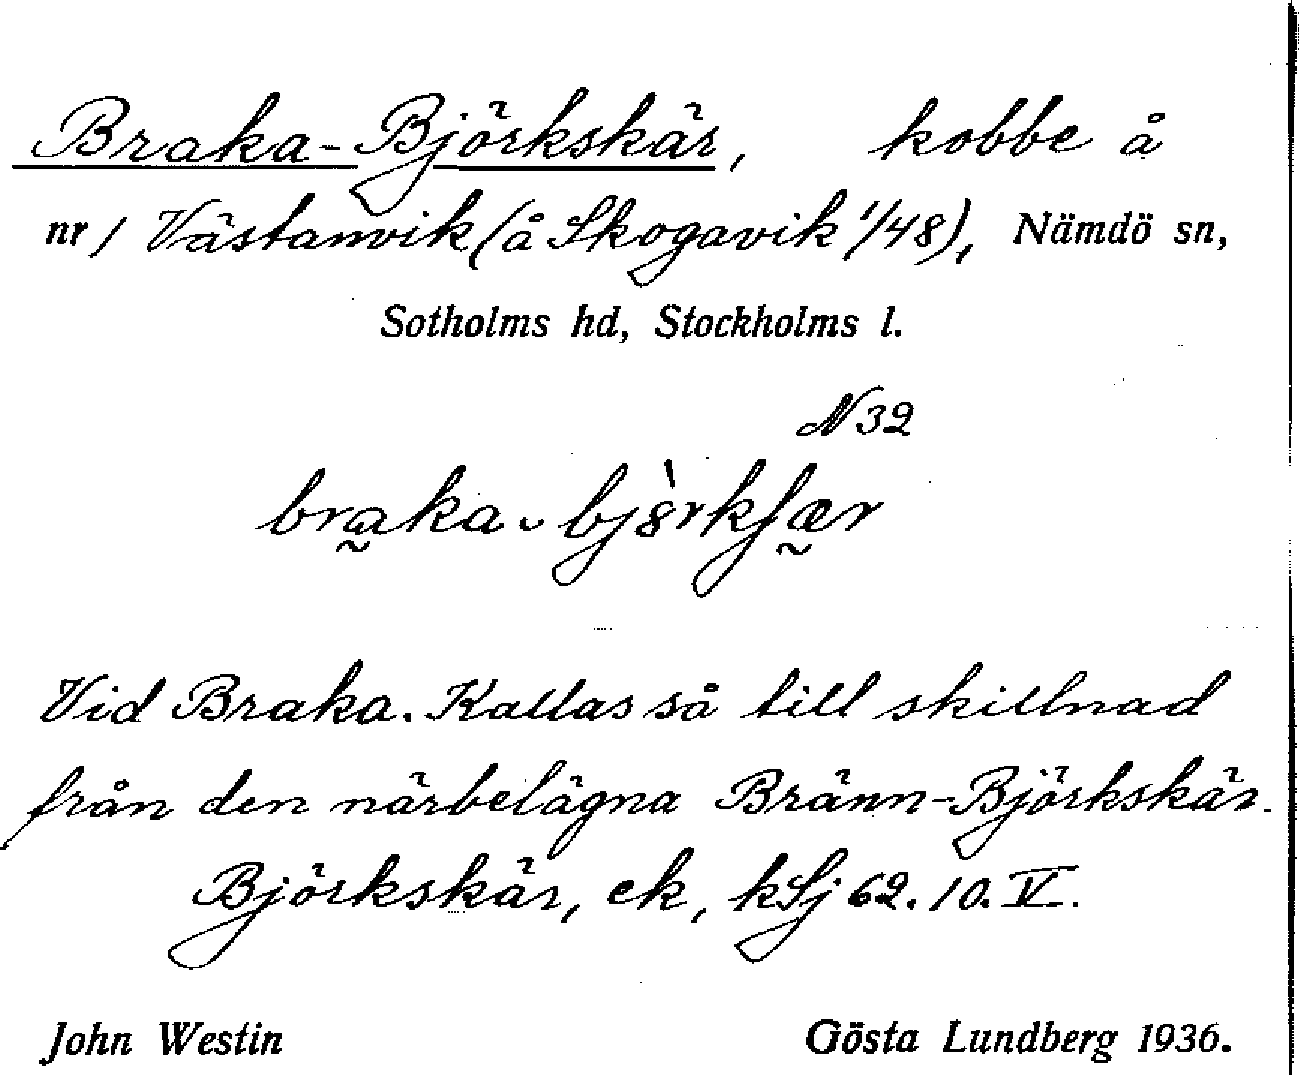 Braka-Björkskär, kobbe å
nr 1 Västanvik (å Skogavik 1/48), Nämdö sn,
Sotholms hd, Stockholms l.
N 32
bra̰ka-bjò̀rkʃæ̰r
Vid Braka. Kallas så till skillnad
från den närbelägna Bränn-Björkskär.
Björkskär, ek, kSj 62. 10. V.
John Westin Gösta Lundberg 1936.